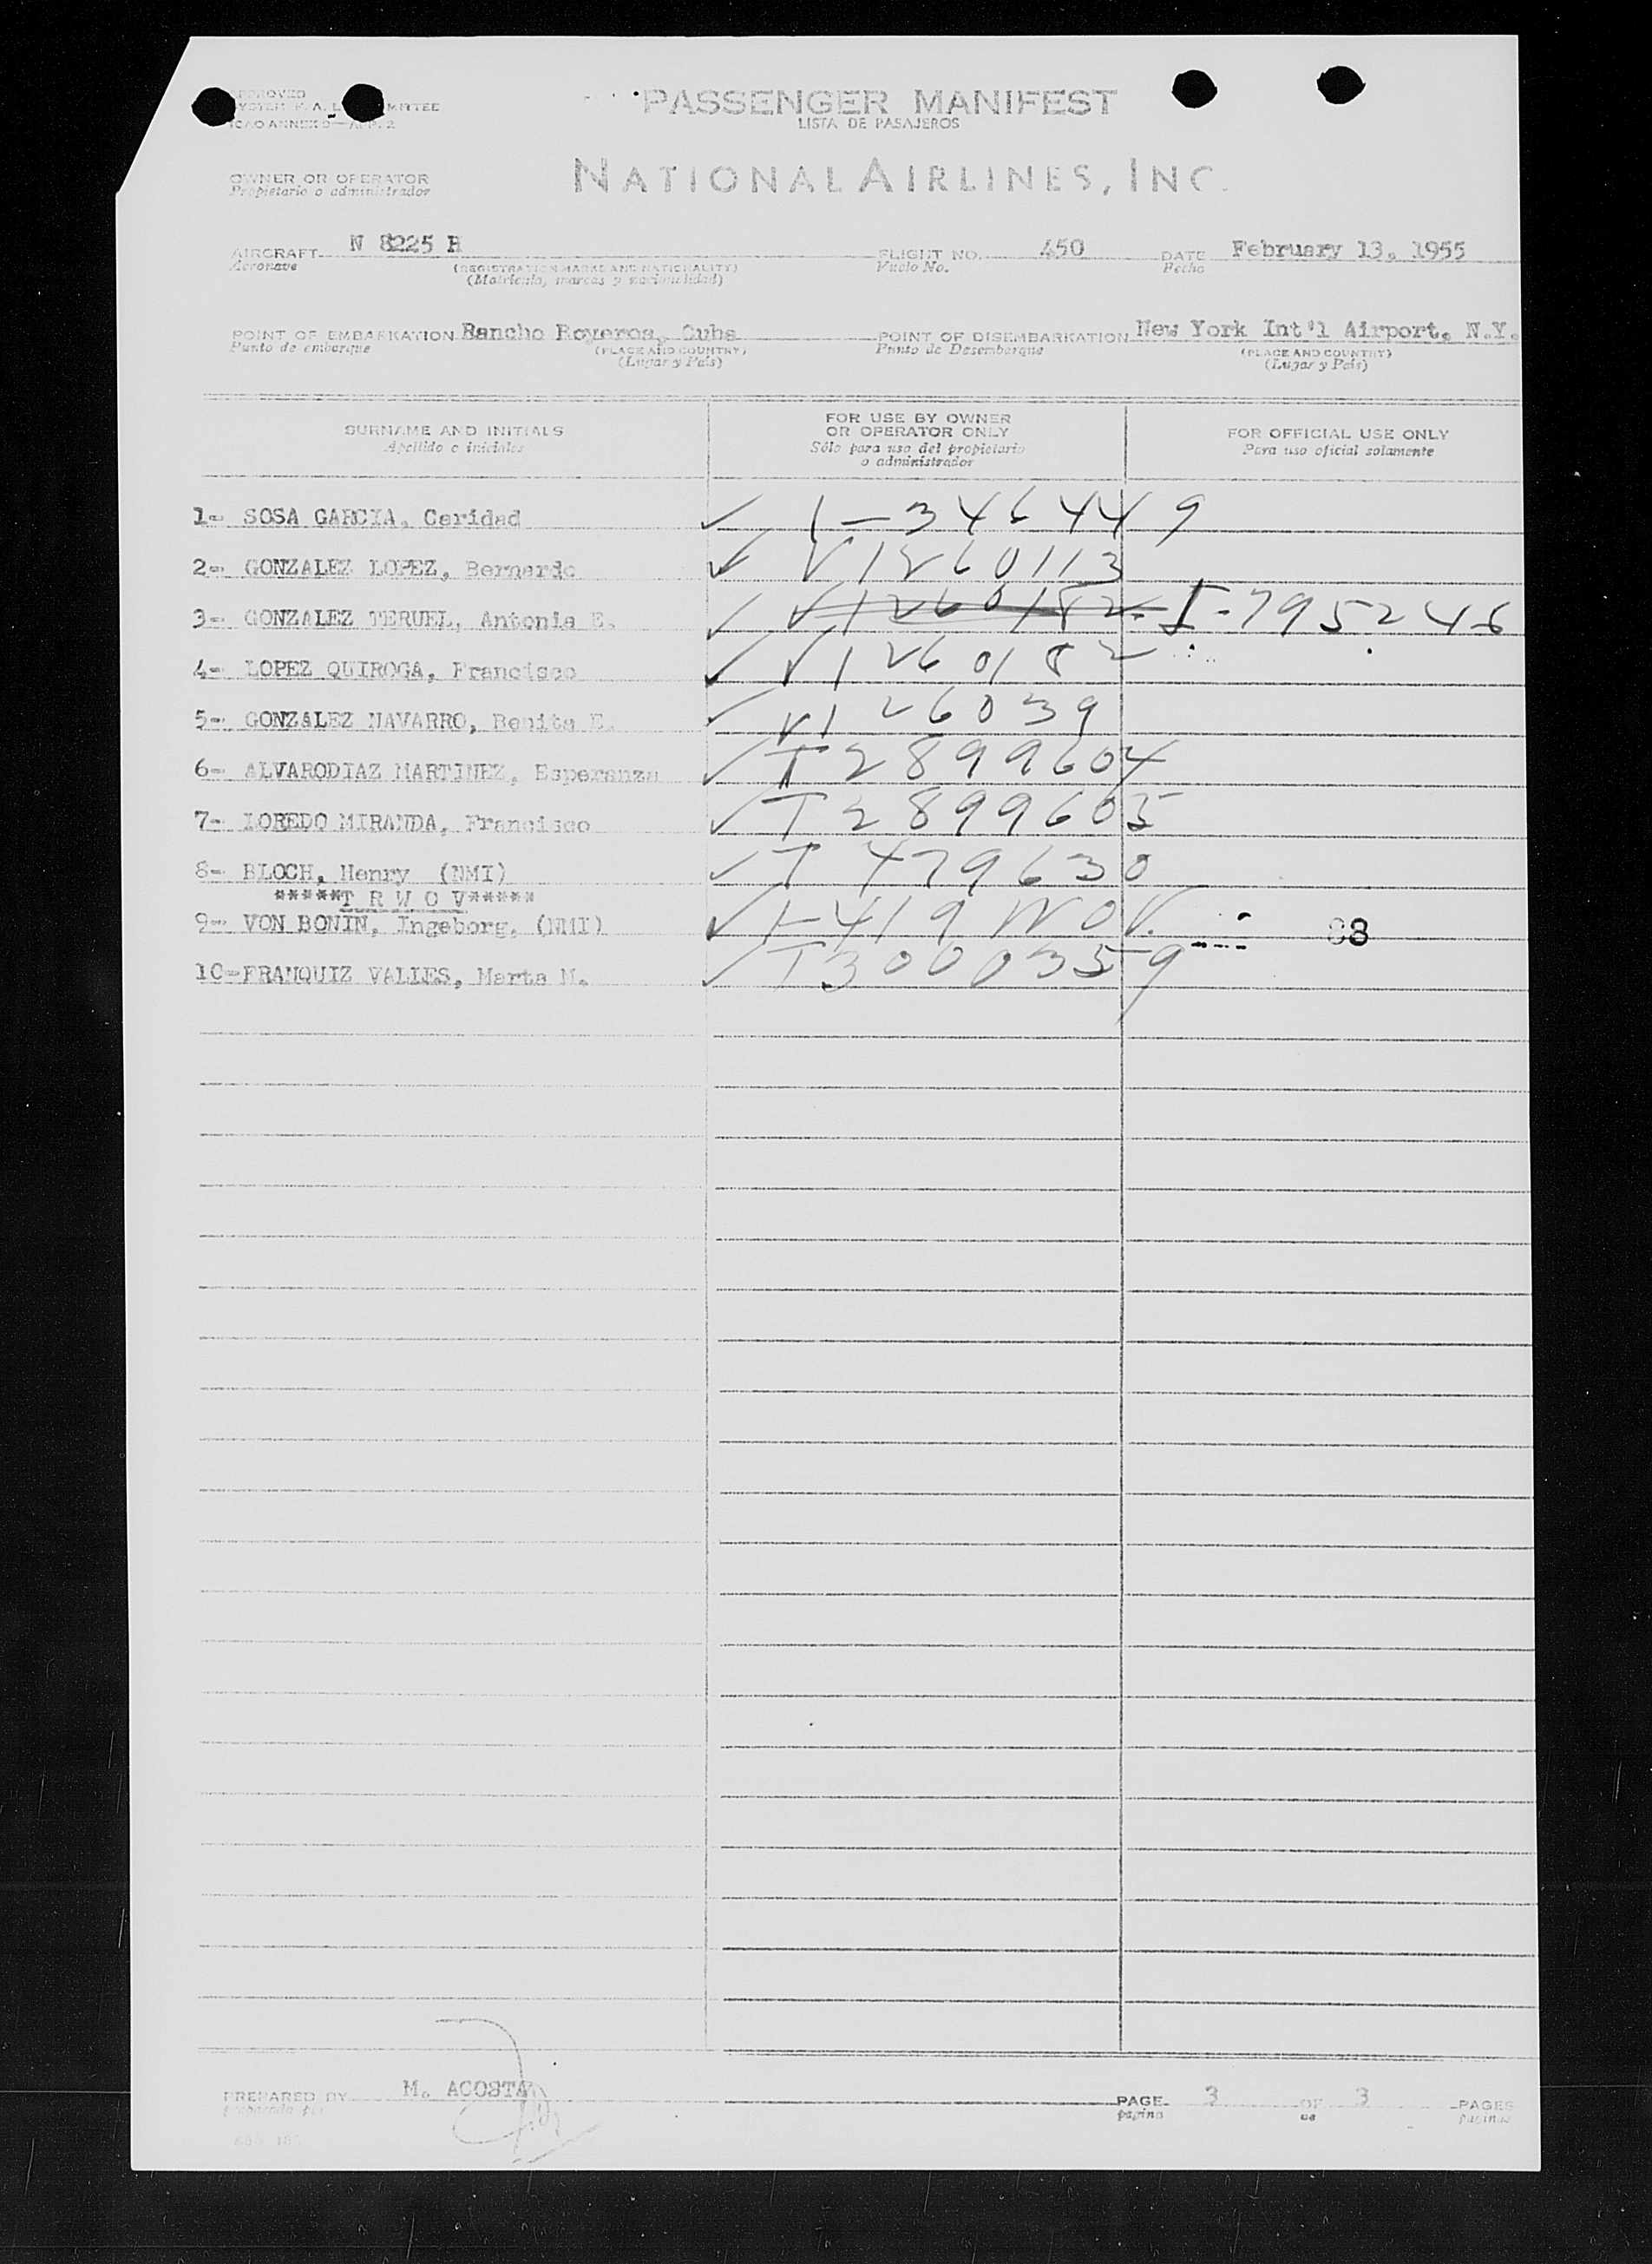 APPROVED
PASSENGER MANIFEST
LISTA DE PASAJEROS
ICAO ANNEX 9—APP. 2
OWNER OR OPERATOR
Propietario o administrador
NATIONAL AIRLINES, INC.
AIRCRAFT N 8225 H FLIGHT NO. 450 DATE February 13, 1955
Aeronave (REGISTRATION MARKS AND NATIONALITY) Vuelo No. Fecha
(Matricula, marcas y nacionalidad)
POINT OF EMBARKATION Rancho Boyeros, Cuba POINT OF DISEMBARKATION New York Int'l Airport, N.Y.
Punto de embarque (PLACE AND COUNTRY) Punto de Desembarque (PLACE AND COUNTRY)
(Lugar y País) (Lugar y País)
SURNAME AND INITIALS FOR USE BY OWNER OR OPERATOR ONLY FOR OFFICIAL USE ONLY
Apellido e iniciales Sólo para uso del propietario o administrador Para uso oficial solamente
1- SOSA GARCIA, Caridad ✓ I-346449
2- GONZALEZ LOPEZ, Bernardo ✓ V1260113
3- GONZALEZ TERUEL, Antonia E. ✓ V1260182 I-795246
4- LOPEZ QUIROGA, Francisco ✓ V1260182
5- GONZALEZ NAVARRO, Benita E. ✓ V126039
6- ALVARODIAZ MARTINEZ, Esperanza ✓ T2899604
7- LOREDO MIRANDA, Francisco ✓ T2899605
8- BLOCH, Henry (NMI) ✓ T479630
*****T R W O V*****
9- VON BONIN, Ingeborg, (NMI) ✓ I-419 WOV. 88
10-FRANQUIZ VALLES, Marta M. ✓ T3000359
PREPARED BY M. ACOSTA PAGE 3 OF 3 PAGES
preparado por pagina de paginas